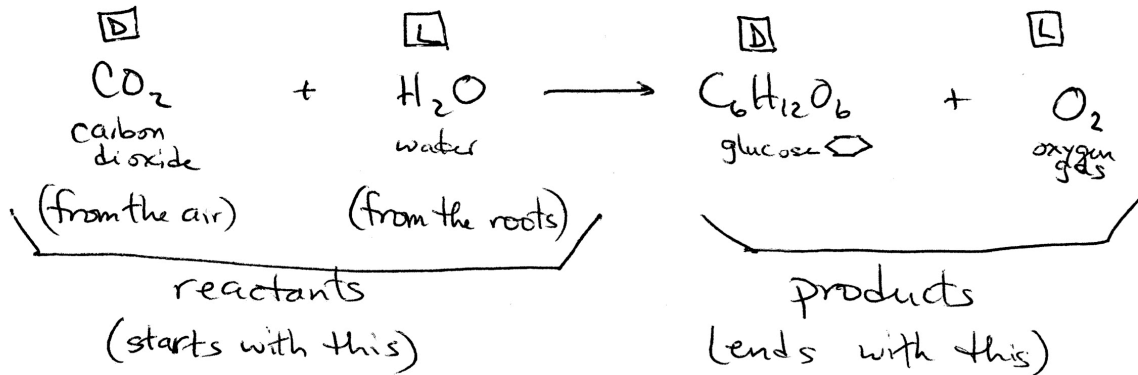 D L D L
CO₂ + H₂O → C₆H₁₂O₆ + O₂
carbon dioxide water glucose oxygen gas
(from the air) (from the roots)
reactants products
(starts with this) (ends with this)